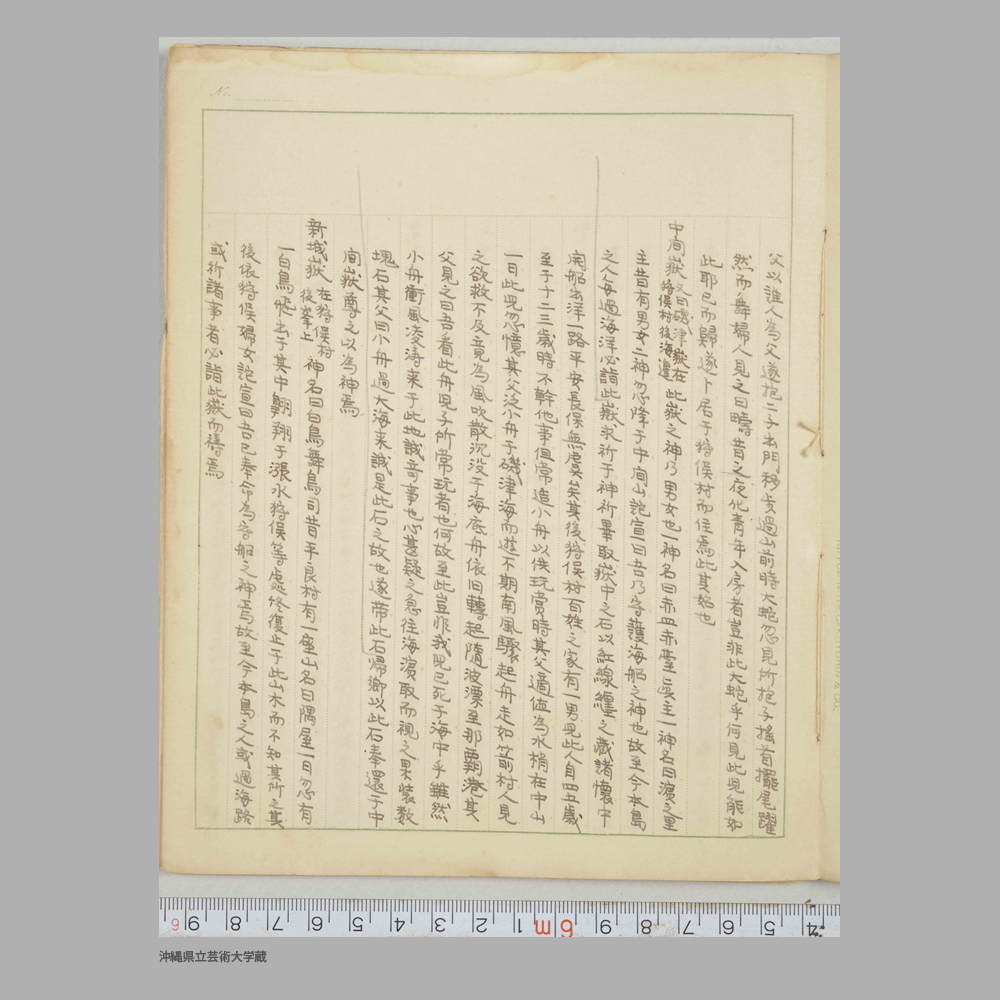 No.
父以誰人為父遂抱二子出門移步過山前時大蛇忽見所抱子搖首擺尾躍
然而舞婦人見之曰疇昔之夜化青年入房者豈非此大蛇乎何見此児能如
此耶已而歸遂卜居于狩俣村而住焉此其始也
中間嶽 又曰磯津嶽在狩俣村後海邊 此嶽之神乃男女也一神名曰赤皿赤臺真主一神名曰濱之里
主昔有男女二神忽降于中間山詫宣曰吾乃守護海船之神也故至今本島
之人毎過海洋必詣此嶽求祈于神祈畢取嶽中之石以紅線纏之蔵諸懷中
開船出洋一路平安長保無虞矣其後狩俣村百姓之家有一男児此人自四五歳
至于十二三歳時不幹他事但常造小舟以供玩賞時其父適値為水梢在中山
一日此児忽憶其父泛小舟于磯津海而遊不期南風驟起舟走如箭村人見
之欲救不及竟為風吹散沉没于海底舟依旧轉起隨波漂至那覇港其
父見之曰吾看此舟児子所常玩者也何故至此豈非我児已死于海中乎雖然
小舟衝風凌濤来于此地誠奇事也心甚疑之急往海濱取而視之果装数
塊石其父曰小舟過大海来誠是此石之故也遂帯此石帰郷以此石奉還于中
間嶽尊之以為神焉
新城嶽 在狩俣村後峯上 神名曰白鳥舞鳥司昔平良村有一座山名曰隅屋一日忽有
一白鳥飛出于其中翺翔于漲水狩俣等處終復止于此山木而不知其所之其
後依狩俣婦女詫宣曰吾已奉命為守船之神焉故至今本島之人或過海路
或祈諸事者必詣此嶽而禱焉
6 9 8 7 6 5 4 3 2 1 6m 9 8 7 6 5 4
沖縄県立芸術大学蔵